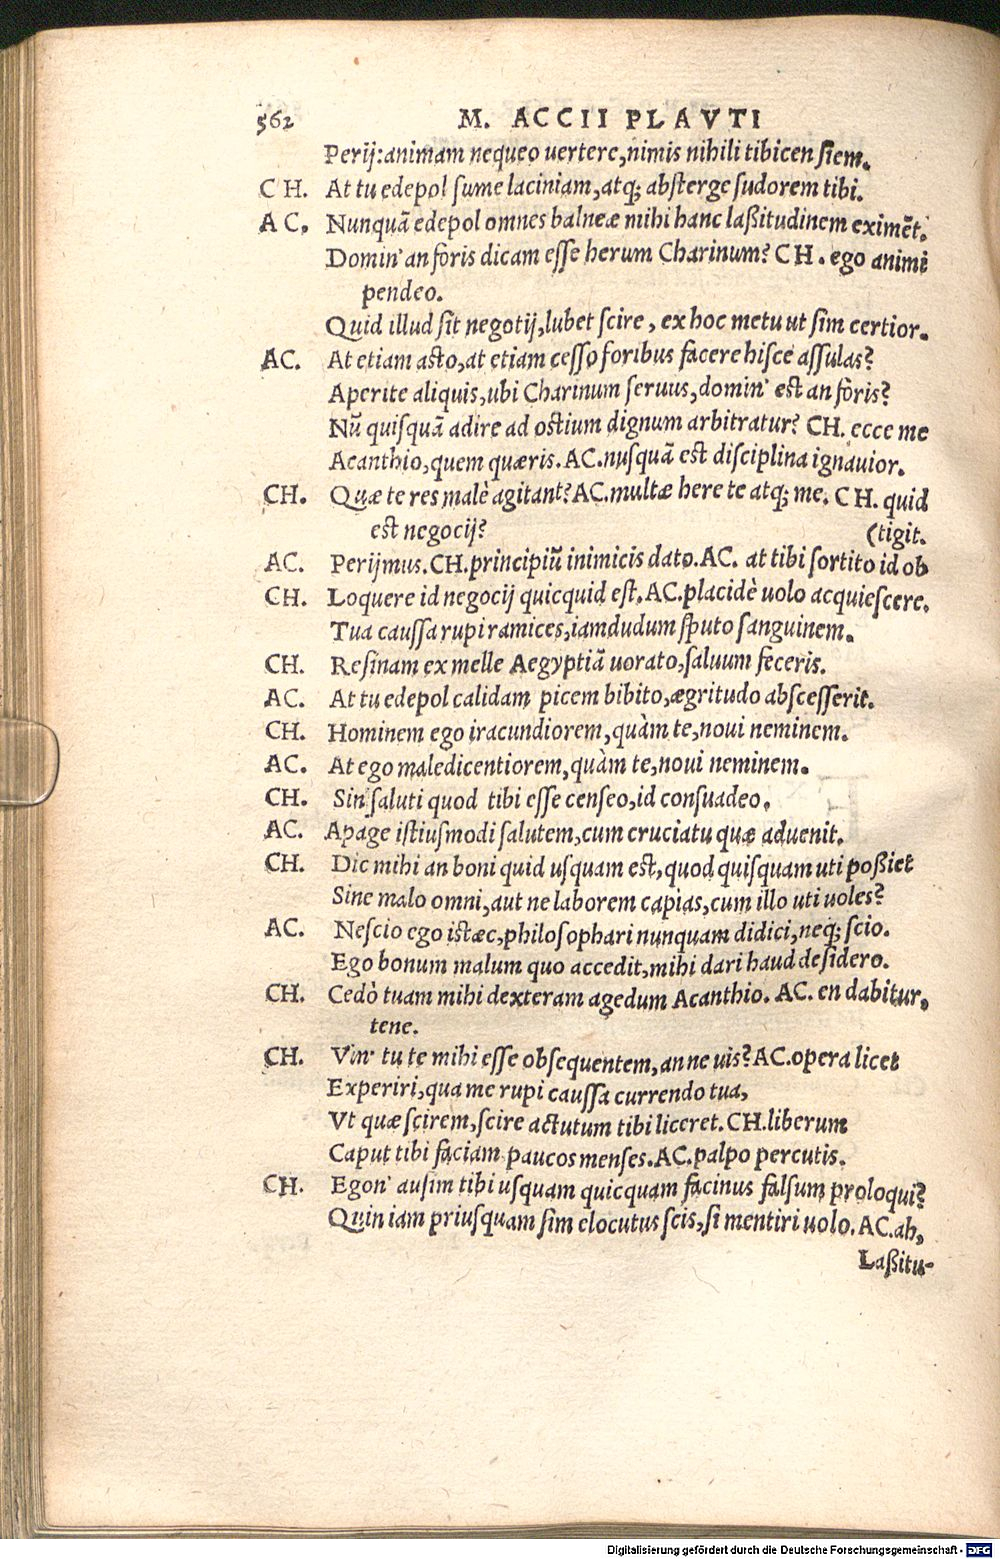 562 M. ACCII PLAVTI
Perij:animam nequeo uertere,nimis nihili tibicen ſiem.
CH. At tu edepol ſume laciniam,atq; abſterge ſudorem tibi.
AC. Nunquã edepol omnes balneæ mihi hanc laßitudinem eximẽt.
Domin' an foris dicam eſſe herum Charinum? CH. ego animi
pendeo.
Quid illud ſit negotij,lubet ſcire, ex hoc metu ut ſim certior.
AC. At etiam aſto,at etiam ceſſo foribus facere hiſce aſſulas?
Aperite aliquis,ubi Charinum ſeruus,domin' eſt an foris?
Nũ quiſquã adire ad oſtium dignum arbitratur? CH. ecce me
Acanthio,quem quæris. AC.nuſquã eſt diſciplina ignauior.
CH. Quæ te res malè agitant? AC.multæ here te atq; me. CH. quid
eſt negocij? (tigit.
AC. Perijmus.CH.principiũ inimicis dato.AC. at tibi ſortito id ob
CH. Loquere id negocij quicquid eſt.AC.placidè uolo acquieſcere.
Tua cauſſa rupi ramices,iamdudum ſputo ſanguinem.
CH. Reſinam ex melle Aegyptiã uorato,ſaluum feceris.
AC. At tu edepol calidam picem bibito,ægritudo abſceſſerit.
CH. Hominem ego iracundiorem,quàm te,noui neminem.
AC. At ego maledicentiorem,quàm te,noui neminem.
CH. Sin ſaluti quod tibi eſſe cenſeo,id conſuadeo.
AC. Apage iſtiuſmodi ſalutem,cum cruciatu quæ aduenit.
CH. Dic mihi an boni quid uſquam eſt,quod quiſquam uti poßiet
Sine malo omni,aut ne laborem capias,cum illo uti uoles?
AC. Neſcio ego iſtæc,philoſophari nunquam didici,neq; ſcio.
Ego bonum malum quo accedit,mihi dari haud deſidero.
CH. Cedò tuam mihi dexteram agedum Acanthio. AC. en dabitur,
tene.
CH. Vin' tu te mihi eſſe obſequentem,an ne uis? AC.opera licet
Experiri,qua me rupi cauſſa currendo tua,
Vt quæ ſcirem,ſcire actutum tibi liceret.CH.liberum
Caput tibi faciam paucos menſes.AC.palpo percutis.
CH. Egon' auſim tibi uſquam quicquam facinus falſum proloqui?
Quin iam priuſquam ſim elocutus ſcis,ſi mentiri uolo.AC.ah,
Laßitu-
Digitalisierung gefördert durch die Deutsche Forschungsgemeinschaft - DFG